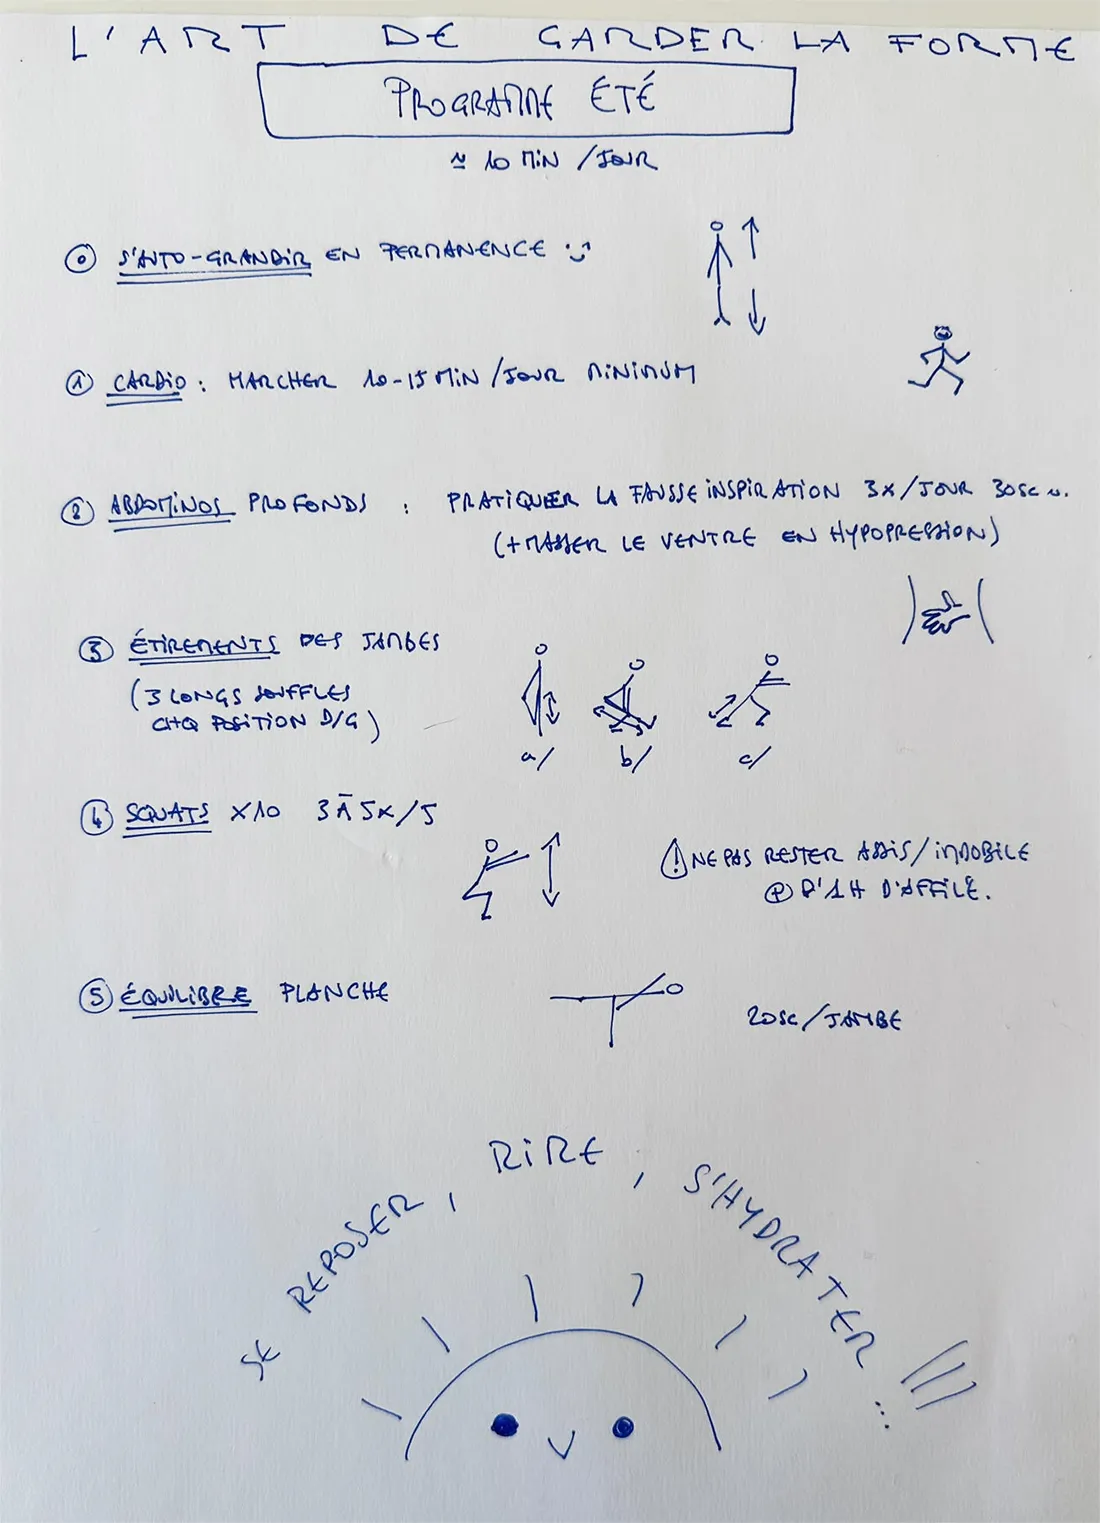 L'ART DE GARDER LA FORME
PROGRAMME ÉTÉ
≃ 10 MIN /JOUR
0 S'AUTO-GRANDIR EN PERMANENCE :-)
1 CARDIO : MARCHER 10-15 MIN /JOUR MINIMUM
2 ABDOMINOS PROFONDS : PRATIQUER LA FAUSSE INSPIRATION 3X/JOUR 30SC
(+ MASSER LE VENTRE EN HYPOPRESSION)
3 ÉTIREMENTS DES JAMBES
(3 LONGS SOUFFLES
CHQ POSITION D/G)
a/ b/ c/
4 SQUATS X10 3 À 5X/J
! NE PAS RESTER ASSIS/IMMOBILE
D'1H D'AFFILÉ.
5 ÉQUILIBRE PLANCHE
20SC/JAMBE
SE REPOSER, RIRE, S'HYDRATER ... !!!